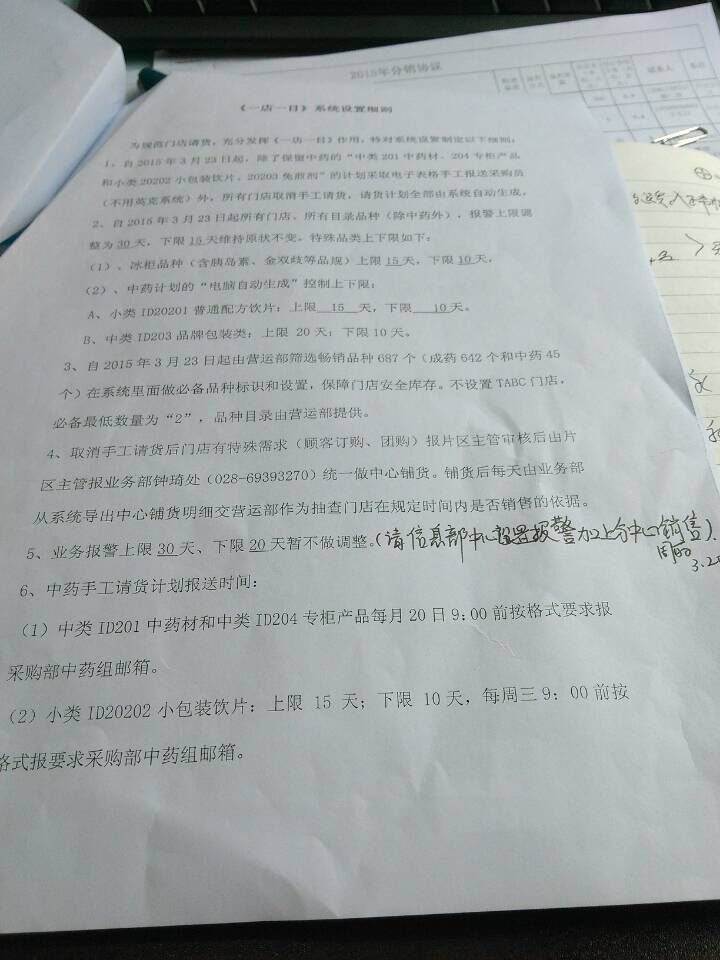 2015年分销协议
《一店一目》系统设置细则
为规范门店请货，充分发挥《一店一目》作用，特对系统设置制定以下细则：
1、自2015年3月23日起，除了保留中药的“中类201中药材、204专柜产品
和小类20202小包装饮片、20203免煎剂”的计划采取电子表格手工报送采购员
（不用英克系统）外，所有门店取消手工请货，请货计划全部由系统自动生成。
2、自2015年3月23日起所有门店、所有目录品种（除中药外），报警上限调
整为30天，下限15天维持原状不变，特殊品类上下限如下：
（1）、冰柜品种（含胰岛素、金双歧等品规）上限15天，下限10天，
（2）、中药计划的“电脑自动生成”控制上下限：
A、小类ID20201普通配方饮片：上限 15 天，下限 10天。
B、中类ID203品牌包装类：上限 20天；下限10天。
3、自2015年3月23日起由营运部筛选畅销品种687个（成药642个和中药45
个）在系统里面做必备品种标识和设置，保障门店安全库存。不设置TABC门店，
必备最低数量为“2”，品种目录由营运部提供。
4、取消手工请货后门店有特殊需求（顾客订购、团购）报片区主管审核后由片
区主管报业务部钟琦处（028-69393270）统一做中心铺货。铺货后每天由业务部
从系统导出中心铺货明细交营运部作为抽查门店在规定时间内是否销售的依据。
5、业务报警上限30天、下限20天暂不做调整。（请信息部中心设置报警加上分中心销售）.
3.20
6、中药手工请货计划报送时间：
（1）中类ID201中药材和中类ID204专柜产品每月20日9：00前按格式要求报
采购部中药组邮箱。
（2）小类ID20202小包装饮片：上限 15 天；下限 10天，每周三9：00前按
格式报要求采购部中药组邮箱。